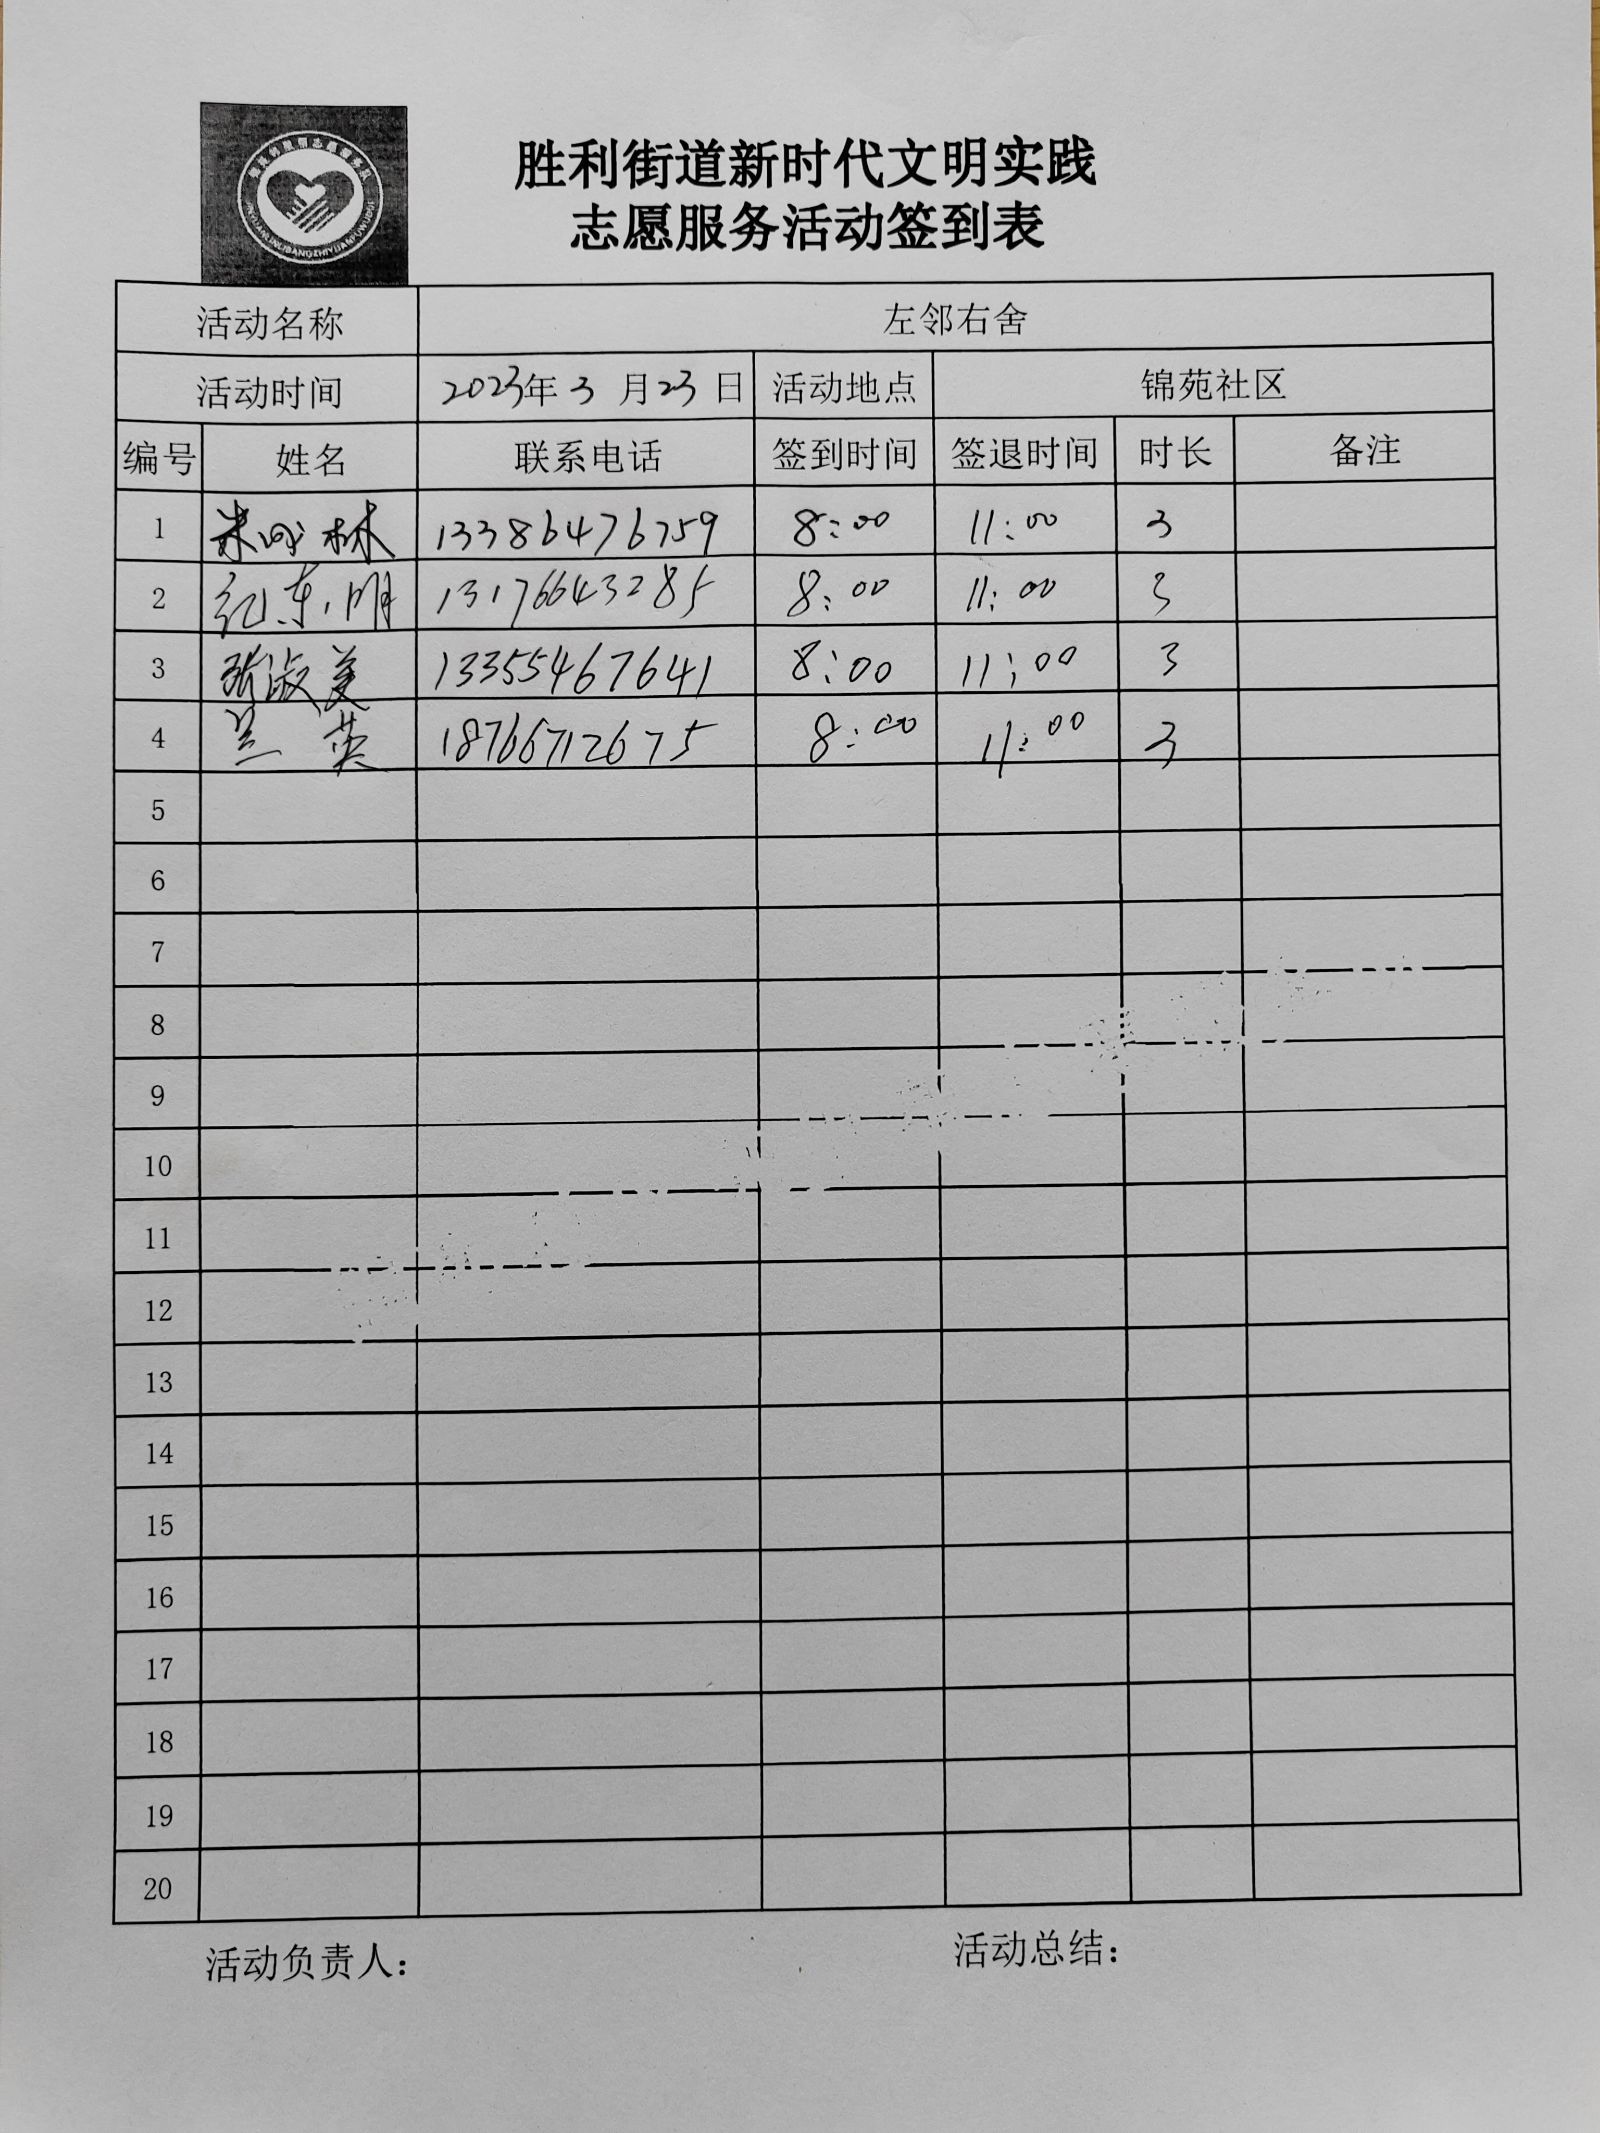 胜利街道新时代文明实践
志愿服务活动签到表
活动名称 左邻右舍
活动时间 2023年3月23日 活动地点 锦苑社区
编号 姓名 联系电话 签到时间 签退时间 时长 备注
1 林 13386476759 8:00 11:00 3
2 纪东明 13176643285 8:00 11:00 3
3 张淑美 13355467641 8:00 11:00 3
4 兰英 18766712675 8:00 11:00 3
5
6
7
8
9
10
11
12
13
14
15
16
17
18
19
20
活动负责人： 活动总结：